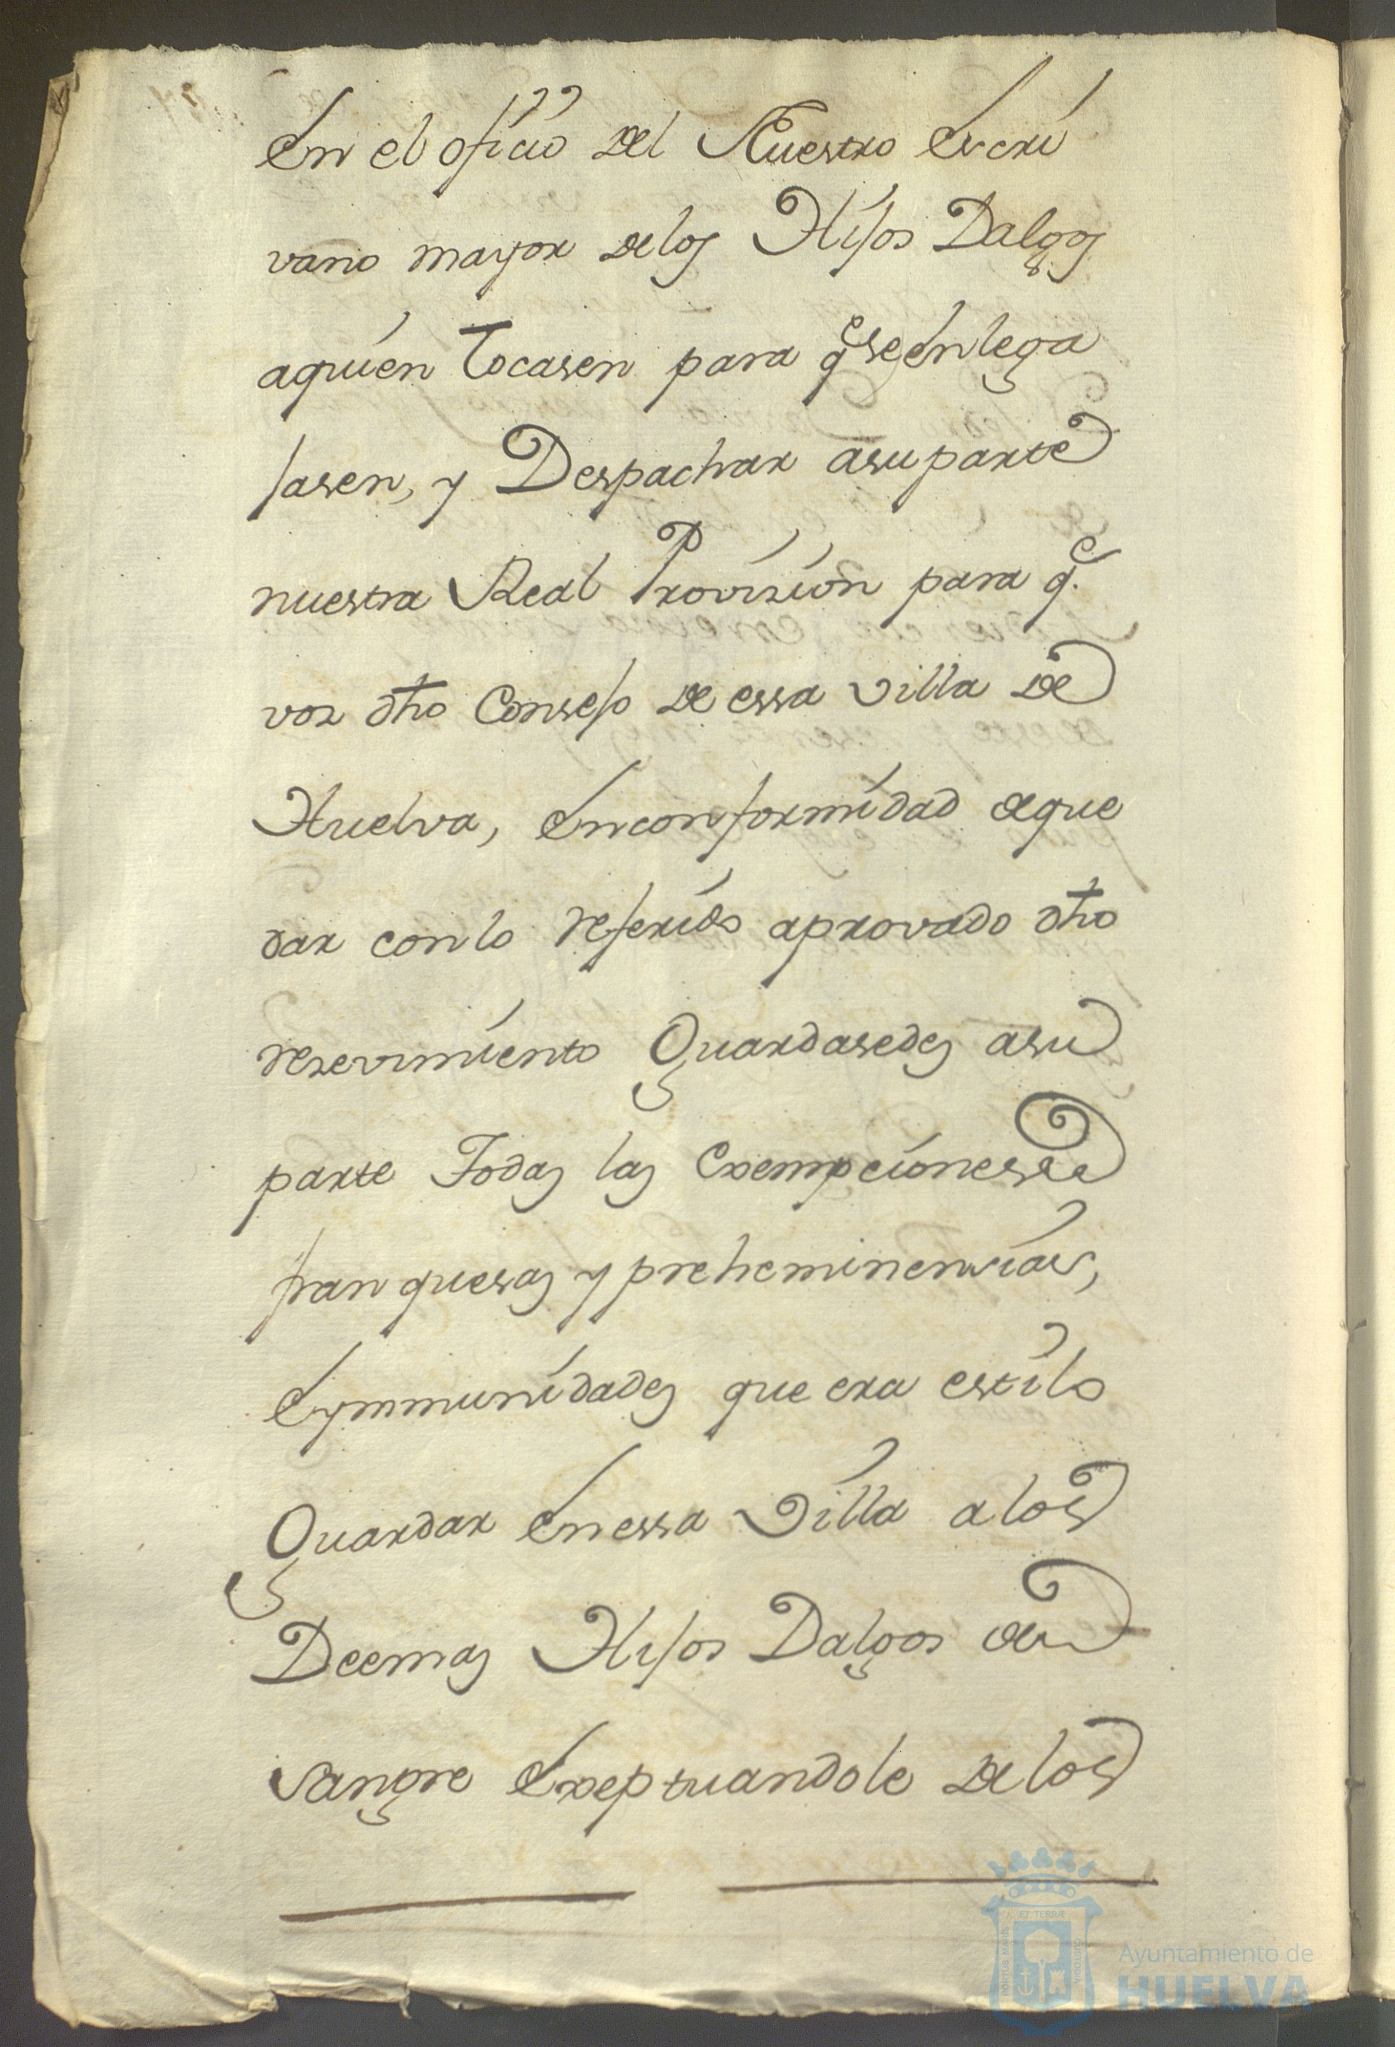 En el oficio del Nuestro Escri
vano mayor delos Hijos Dalgos
aquien tocasen para q.e se enlega
jasen, y Despachar asuparte
nuestra Real Provision para q.e
vos dho Consejo de essa villa de
Huelva, enconformidad deque
dar conlo referido aprovado dho
resevimiento Guardasedes asu
parte Todas las Exempciones
franquesas y preheminensias,
Eymmunidades que era estilo
Guardar Enessa Villa a los
Deemas Hijos Dalgos de
sangre Exeptuandole Delos
Ayuntamiento de
HUELVA